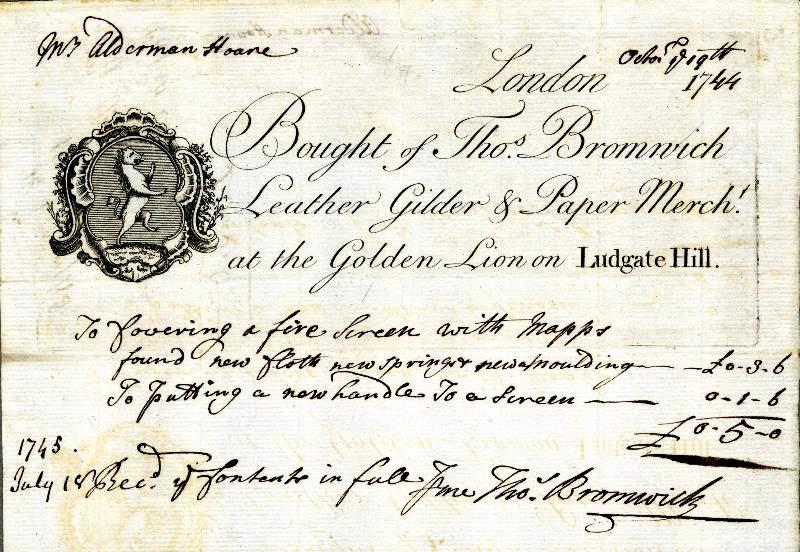 Mr Alderman Hoare
Octor ye 19th
London 1744
Bought of Thos. Bromwich
Leather Gilder & Paper Mercht.
at the Golden Lion on Ludgate Hill.
To Covering a fire Screen with Mapps
found new Cloth new springs & new Moulding — £0-3-6
To Putting a new handle To a Screen — 0-1-6
£0-5-0
1745.
July 18 Recd. ye Contents in full
Thos. Bromwich